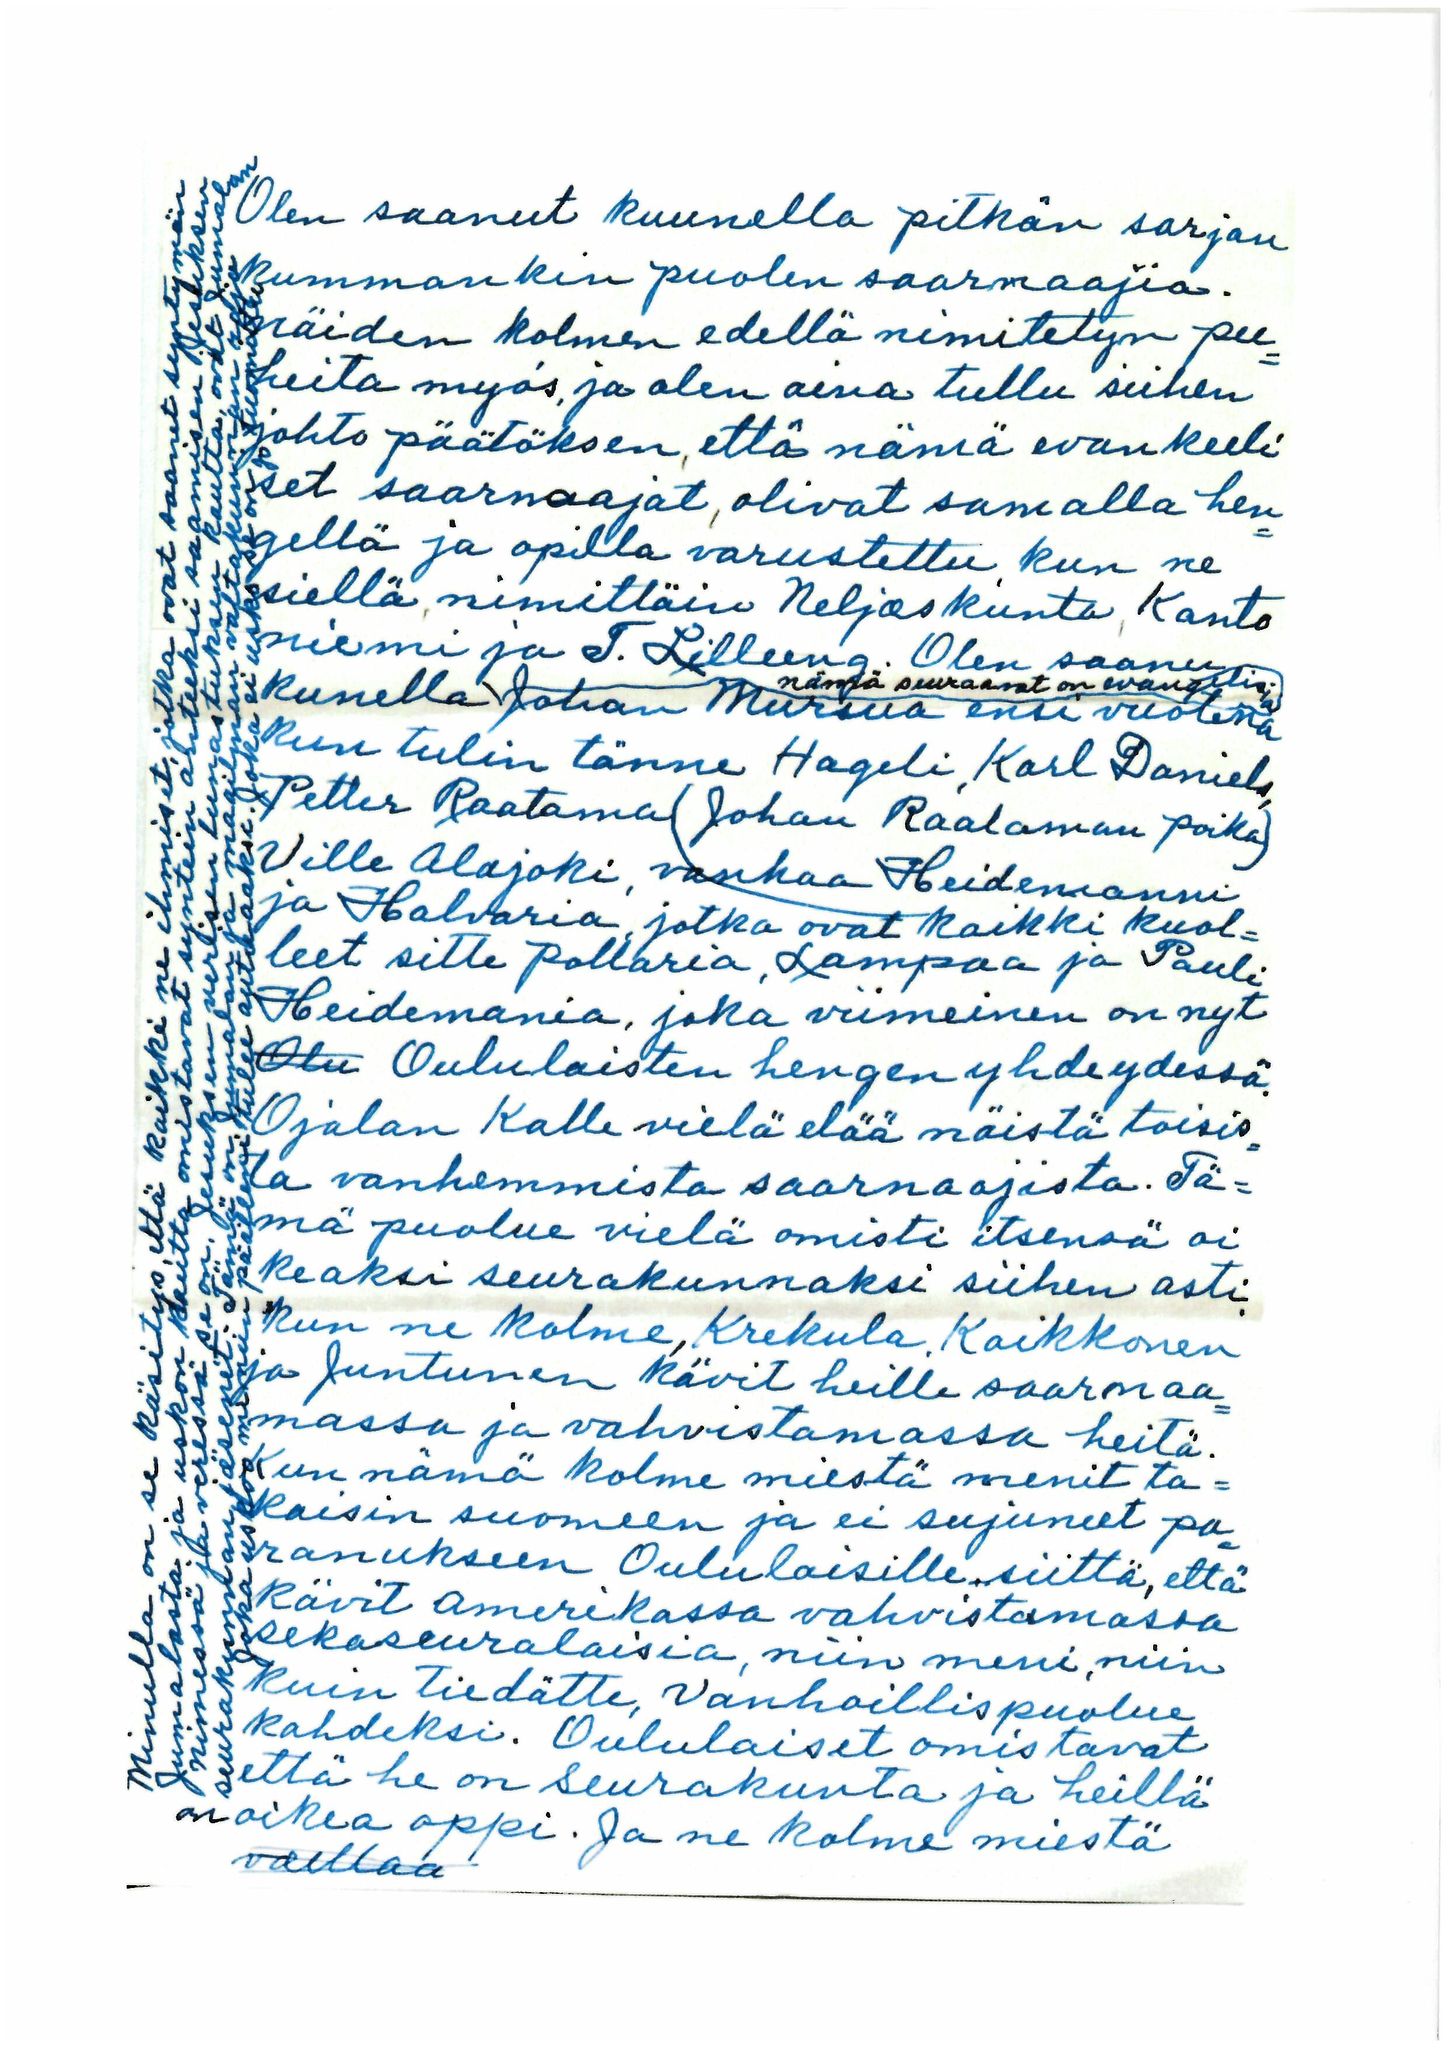 Olen saanut kuunella pitkän sarjan
kummankin puolen saarnaajia.
näiden kolmen edellä nimitetyn pu=
heita myös, ja olen aina tullu siihen
johto päätöksen, että nämä evankeeli
set saarnaajat, olivat samalla hen=
gellä ja opilla varustettu, kun ne
siellä, nimittäin Neljäskunta, Kanto
niemi ja T. Lilleeng. Olen saanu
nämä seuraavat on evangelisia
kunella Johan Mursua ensi vuotena
kun tulin tänne Hageli, Karl Daniels,
Petter Raatama (Johan Raataman poika)
Ville Alajoki, vanhaa Heidemanni
ja Halvaria, jotka ovat kaikki kuol=
leet sitte Pollaria, Lampaa ja Pauli
Heidemania, joka viimeinen on nyt
Olu Oululaisten hengen yhdeydessä.
Ojalan Kalle vielä elää näistä toisis=
ta vanhemmista saarnaajista. Tä=
mä puolue vielä omisti itsensä oi
keaksi seurakunnaksi siihen asti
kun ne kolme, Krekula, Kaikkonen
ja Juntunen kävit heille saarnaa=
massa ja vahvistamassa heitä.
Kun nämä kolme miestä menit ta=
kaisin suomeen ja ei sujuneet pa=
ranukseen Oululaisille siittä, että
kävit Amerikassa vahvistamassa
sekaseuralaisia, niin meni, niin
kuin tiedätte, Vanhoillispuolue
kahdeksi. Oululaiset omistavat
että he on Seurakunta ja heillä
on oikea oppi. Ja ne kolme miestä
vaeltaa
Minulla on se käsitys, että kaikki ne ihmiset, jotka ovat saanet syntymän
Jumalasta ja uskon kautta omistavat syntein anteeksi saamisen Jesuksen
nimessä ja veressä se on, Jesuksen verisen lunastuksen kautta, ovat Jumalan
seurakunnan jäsenet. Tämä on Jumalan ja maailman valtakunnan raja
Joka uskoo minun päälleni tulee autuaaksi. Joka ei usko se on jo tuomittu